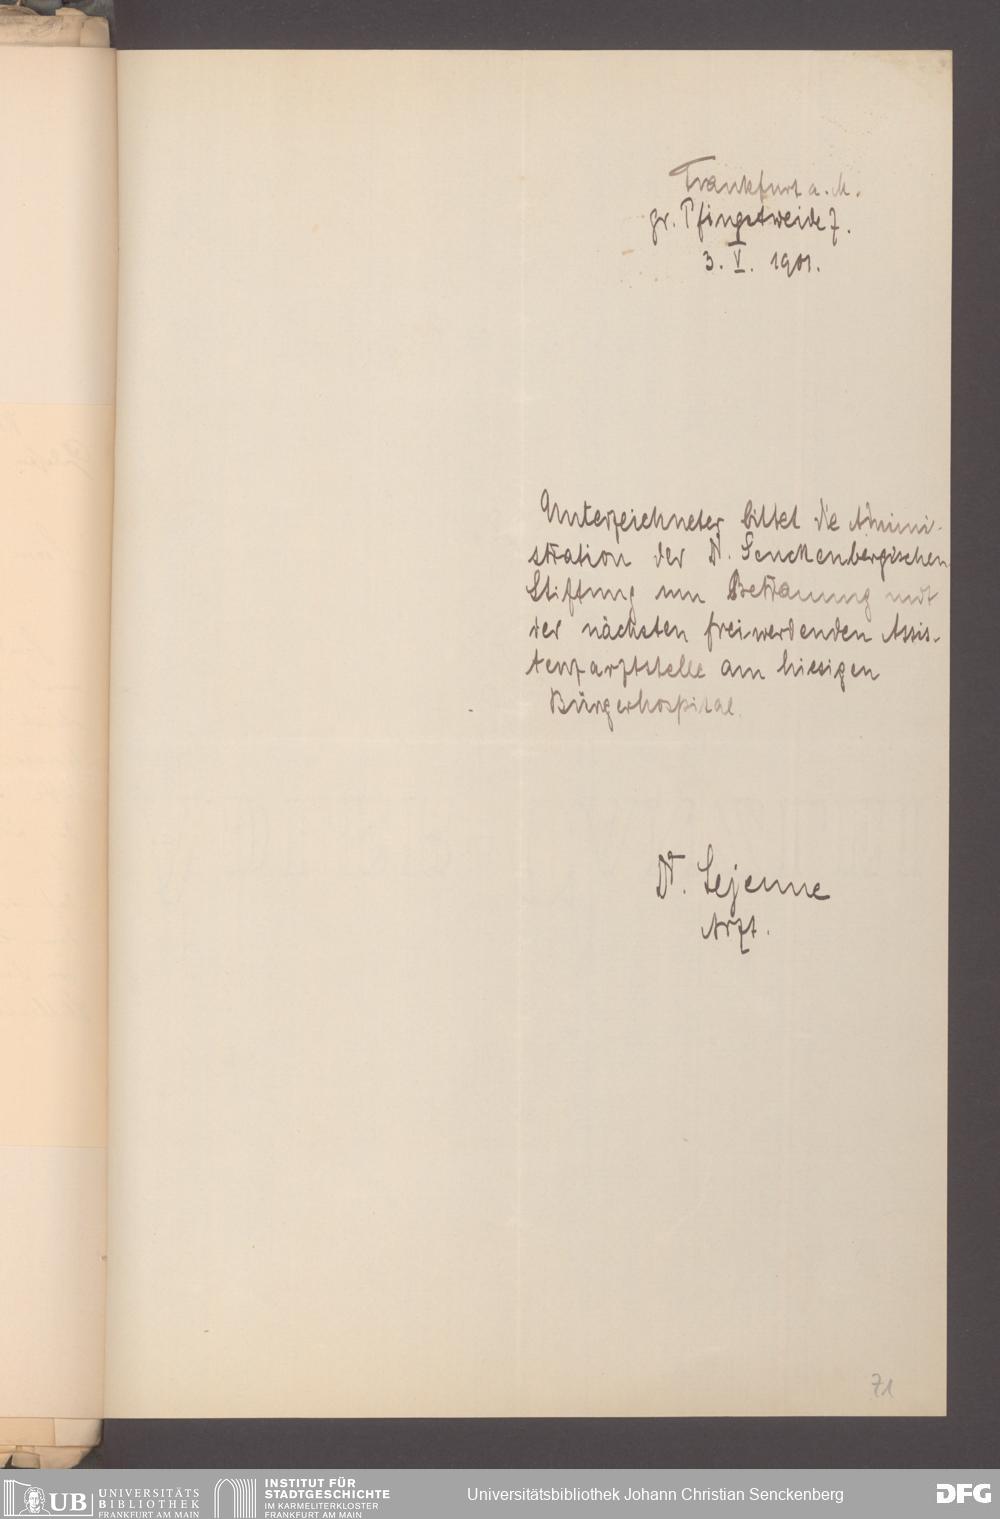 Frankfurt a. M.
gr. Pfingstweide 7.
3. V. 1901.
Unterzeichneter bittet die Admini-
stration der Dr. Senckenbergischen
Stiftung um Betrauung mit
der nächsten freiwerdenden Assis-
tenzarztstelle am hiesigen
Bürgerhospital.
Dr. Lejeune
Arzt.
71
UB
UNIVERSITÄTS
BIBLIOTHEK
FRANKFURT AM MAIN
INSTITUT FÜR
STADTGESCHICHTE
IM KARMELITERKLOSTER
FRANKFURT AM MAIN
Universitätsbibliothek Johann Christian Senckenberg
DFG